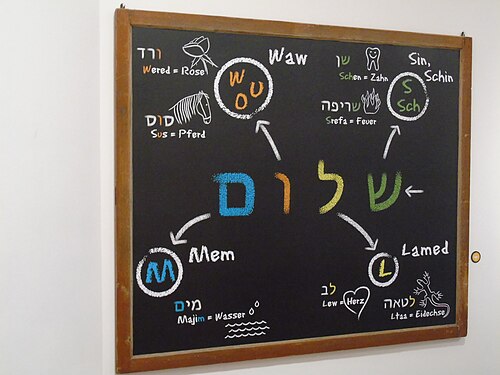 ורד
Wered = Rose
Waw
W
O U
סוס
Sus = Pferd
שן
Schen = Zahn
Sin,
Schin
S
Sch
שריפה
Srefa = Feuer
שלום
M
Mem
מים
Majim = Wasser
L
Lamed
לב
Lew = Herz
לטאה
Ltaa = Eidechse